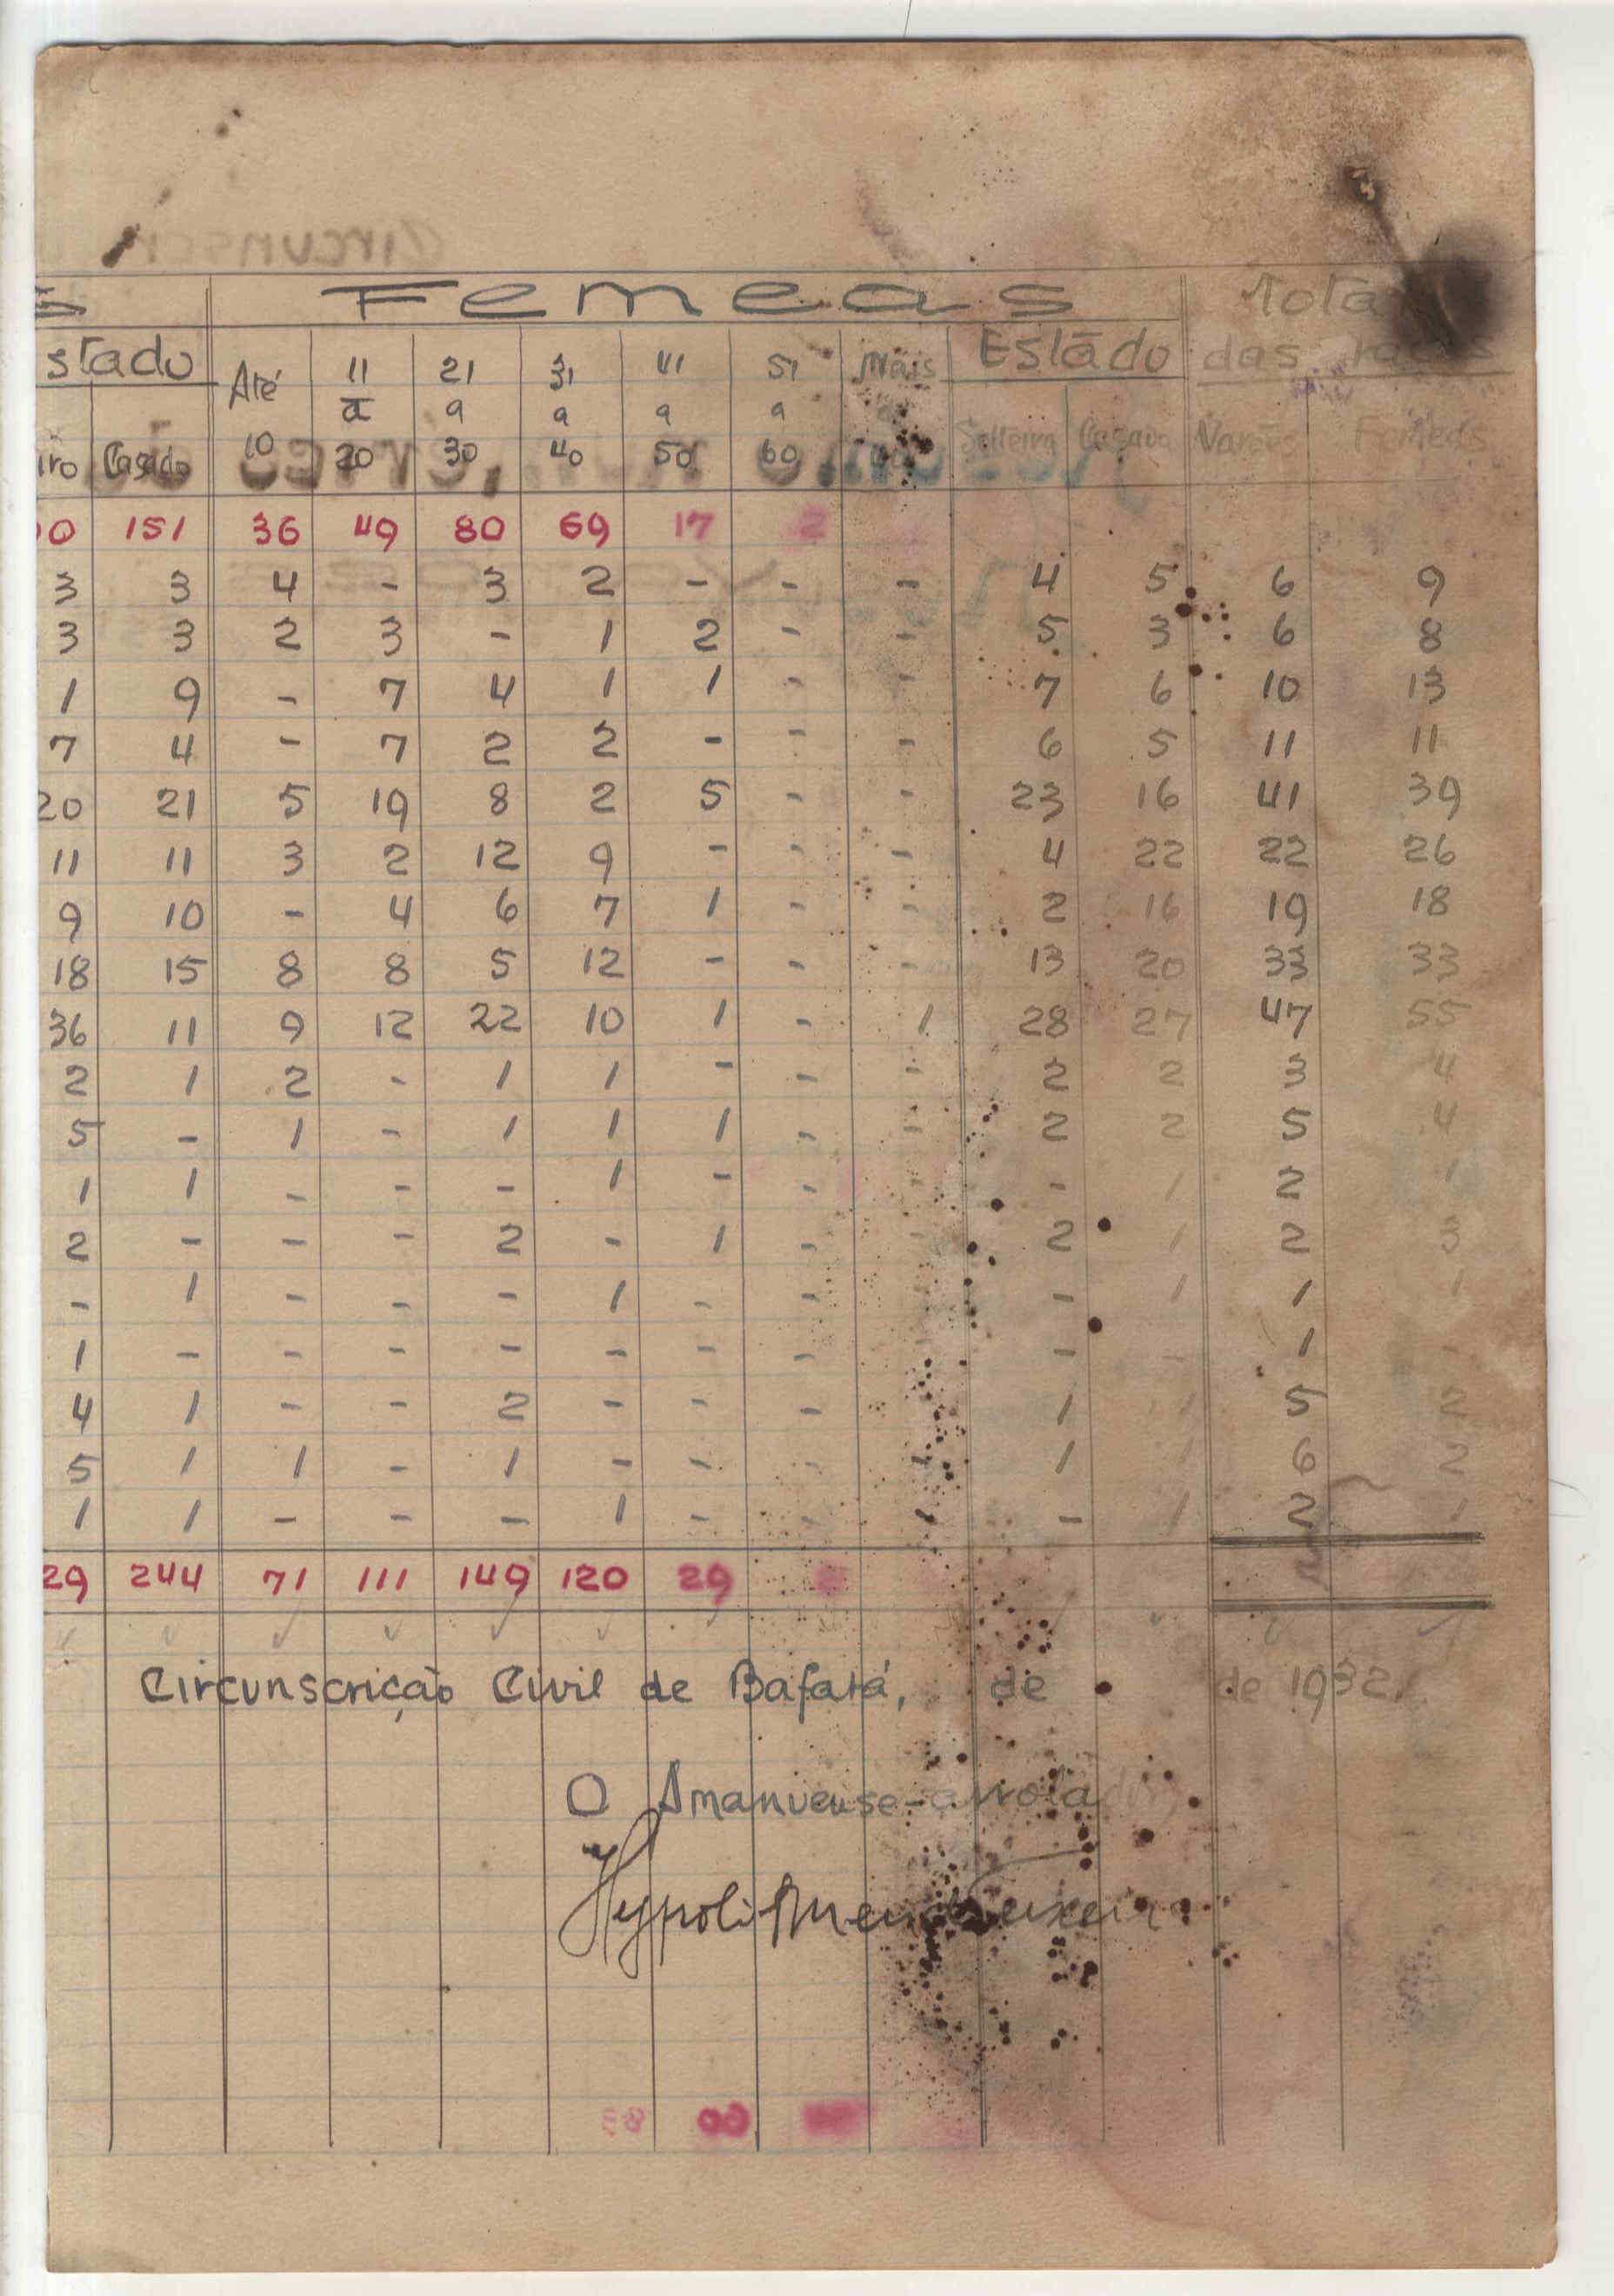 Femeas
stado Até 11 21 31 41 51 Mais Estãdo das
a a a a a
iro Casado 10 20 30 40 50 60 Solteira Casado Varões Femeds
0 151 36 49 80 69 17 2
3 3 4 - 3 2 - - - 4 5 6 9
3 3 2 3 - 1 2 - - 5 3 6 8
1 9 - 7 4 1 1 - - 7 6 10 13
7 4 - 7 2 2 - - - 6 5 11 11
20 21 5 19 8 2 5 - - 23 16 41 39
11 11 3 2 12 9 - - - 4 22 22 26
9 10 - 4 6 7 1 - - 2 16 19 18
18 15 8 8 5 12 - - - 13 20 33 33
36 11 9 12 22 10 1 - 1 28 27 47 55
2 1 2 - 1 1 - - - 2 2 3 4
5 - 1 - 1 1 1 - - 2 2 5 4
1 1 - - - 1 - - - 1 2 1
2 - - - 2 - 1 - - 2 1 2 3
- 1 - - - 1 - - - 1 1 1
1 - - - - - - - - - 1 -
4 1 - - 2 - - - 1 1 5 2
5 1 1 - 1 - - - 1 1 6 2
1 1 - - - 1 - - - 1 2 1
29 244 71 111 149 120 29
Circunscrição Civil de Bafatá, de de 1932.
O Amanuense-arrolador